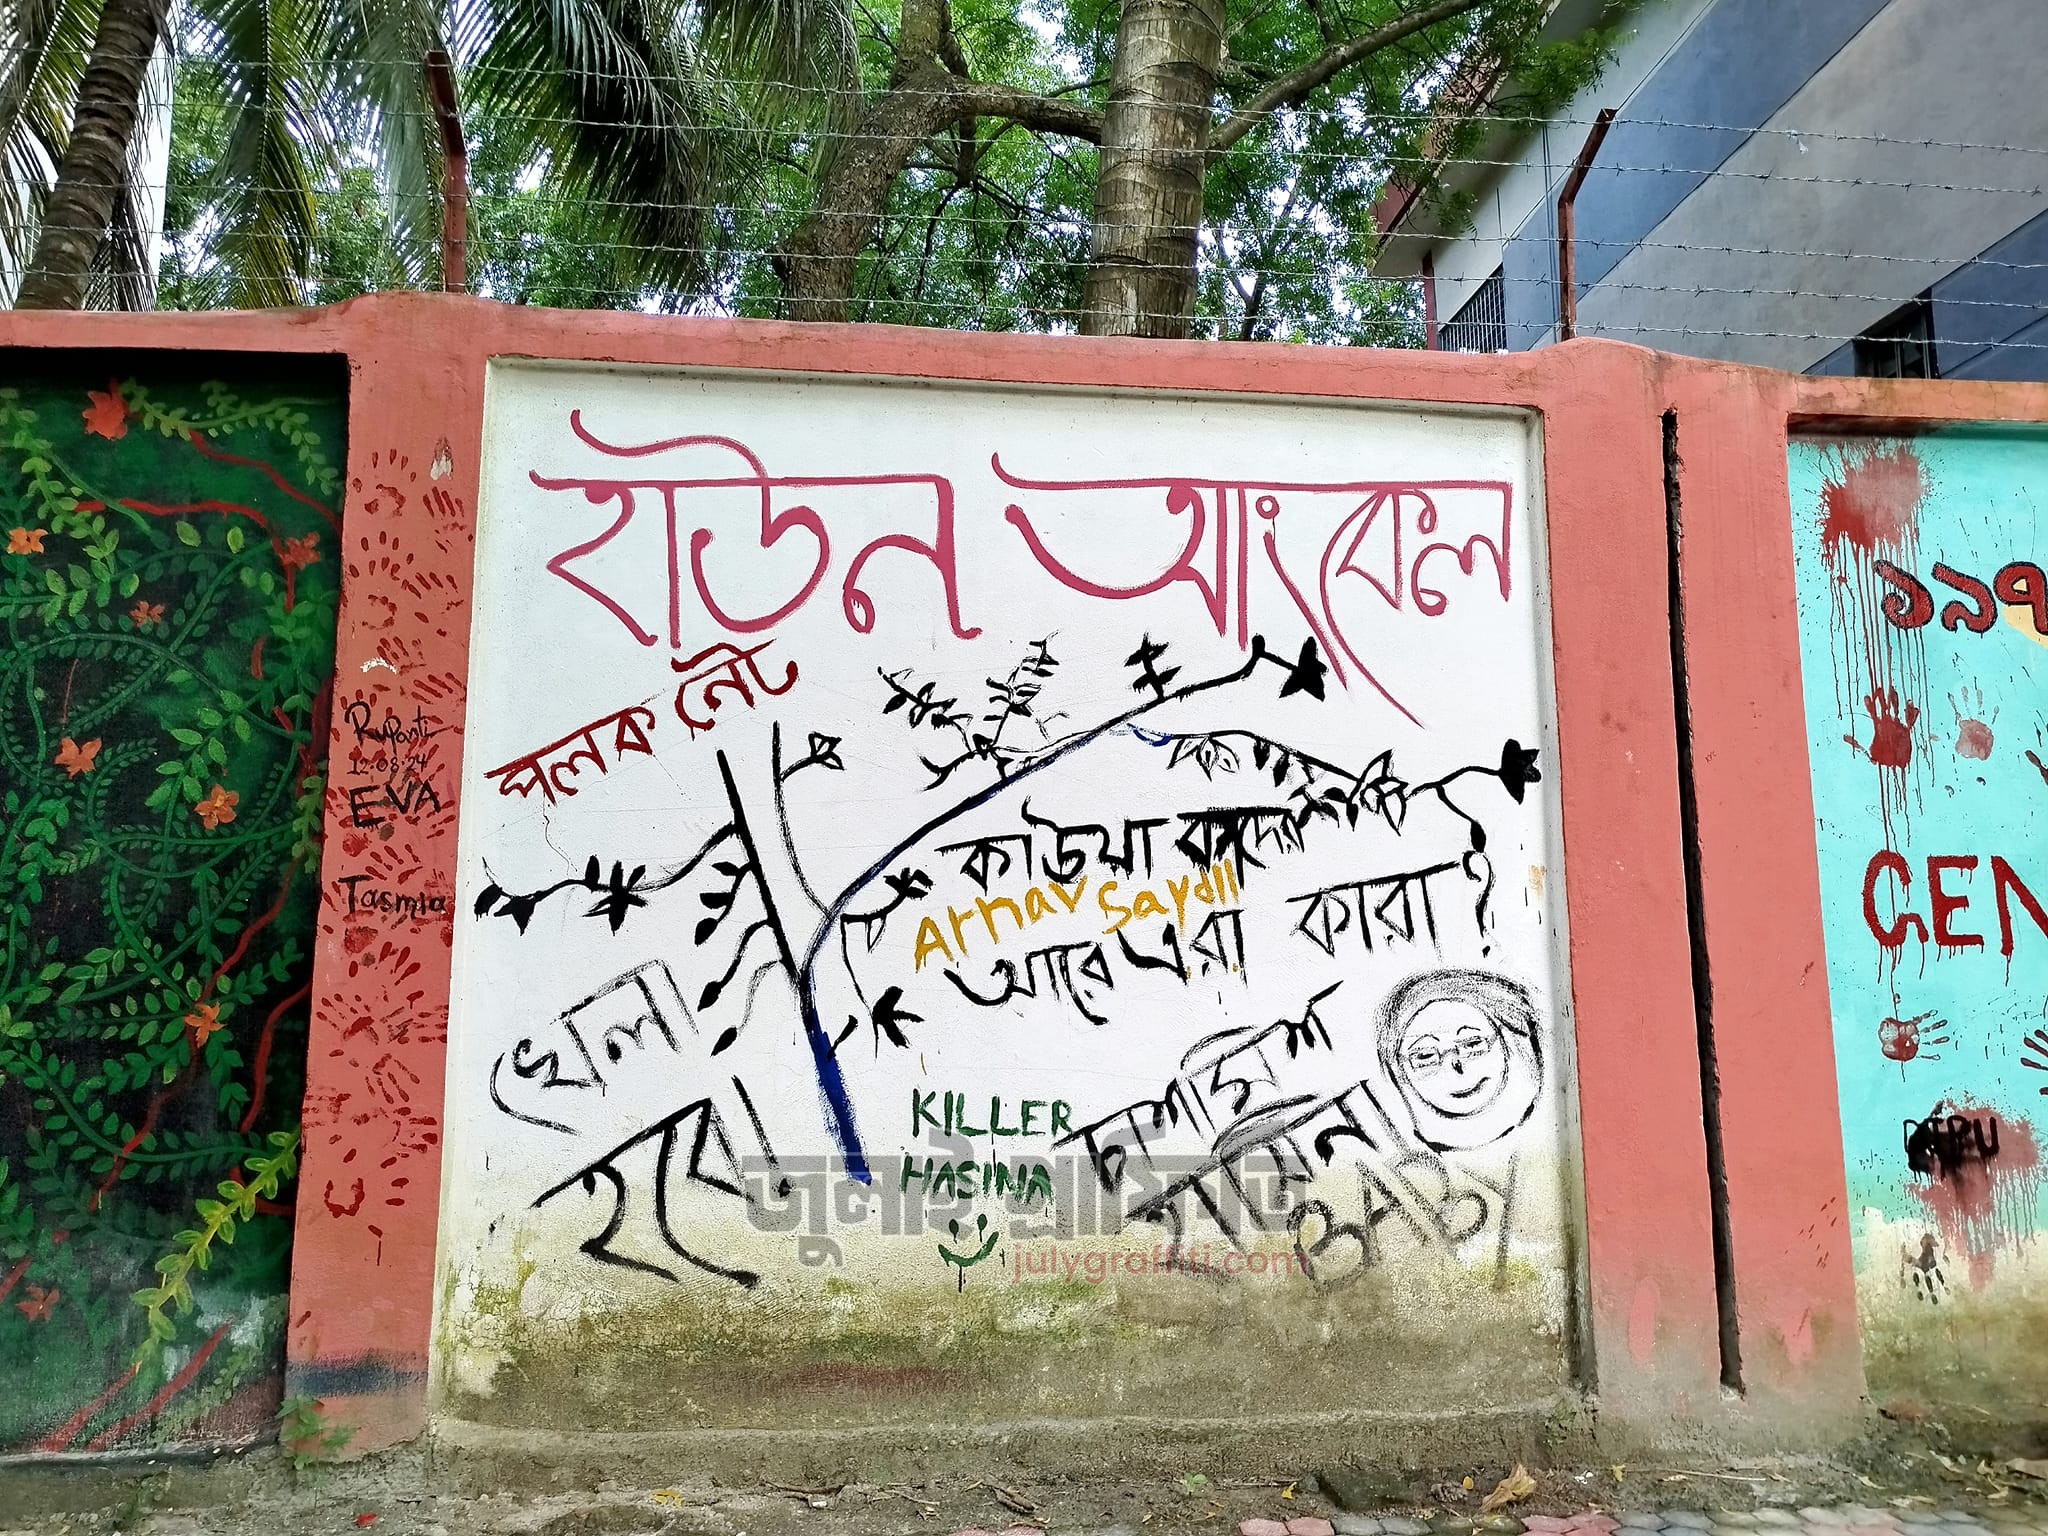 হাউন আংকেল
পলক নেট
কাউয়া কাদের
Arnav Saydil
আরে এরা কারা?
খেলা
হবে।
KILLER
HASINA
চাশমিশ
হাসিনা
BABY
Rupanti
12.08.24
EVA
Tasmia
১৯৭
GEN
জুলাই গ্রাফিতি
julygraffiti.com